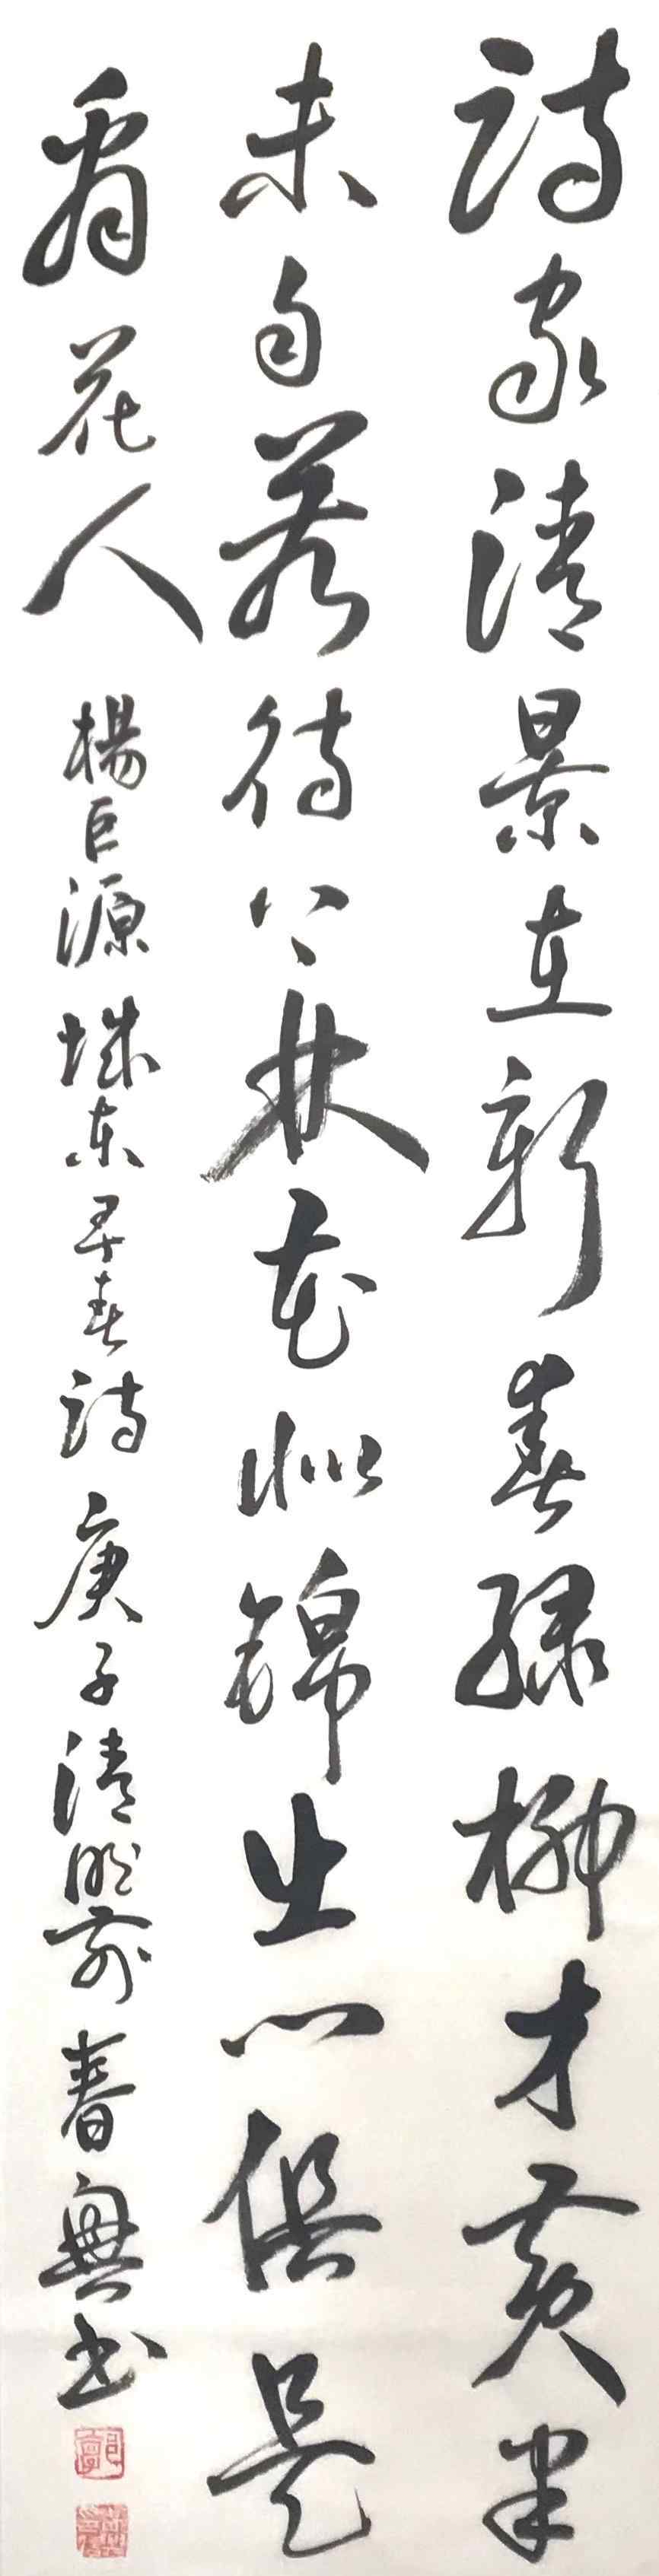 詩家清景在新春綠柳才黃半
未勻若待上林花似錦出門俱是
看花人 楊巨源城東早春詩 庚子清明前 春書